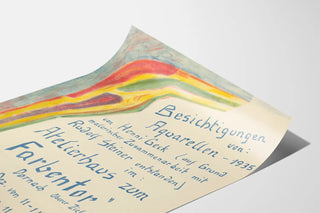 Besichtigungen
von:
Aquarellen - 1975
von Henni Geck (auf Grund
malerischer Zusammenarbeit mit
Rudolf Steiner entstanden)
im:
Atelierhaus zum
Farbentor